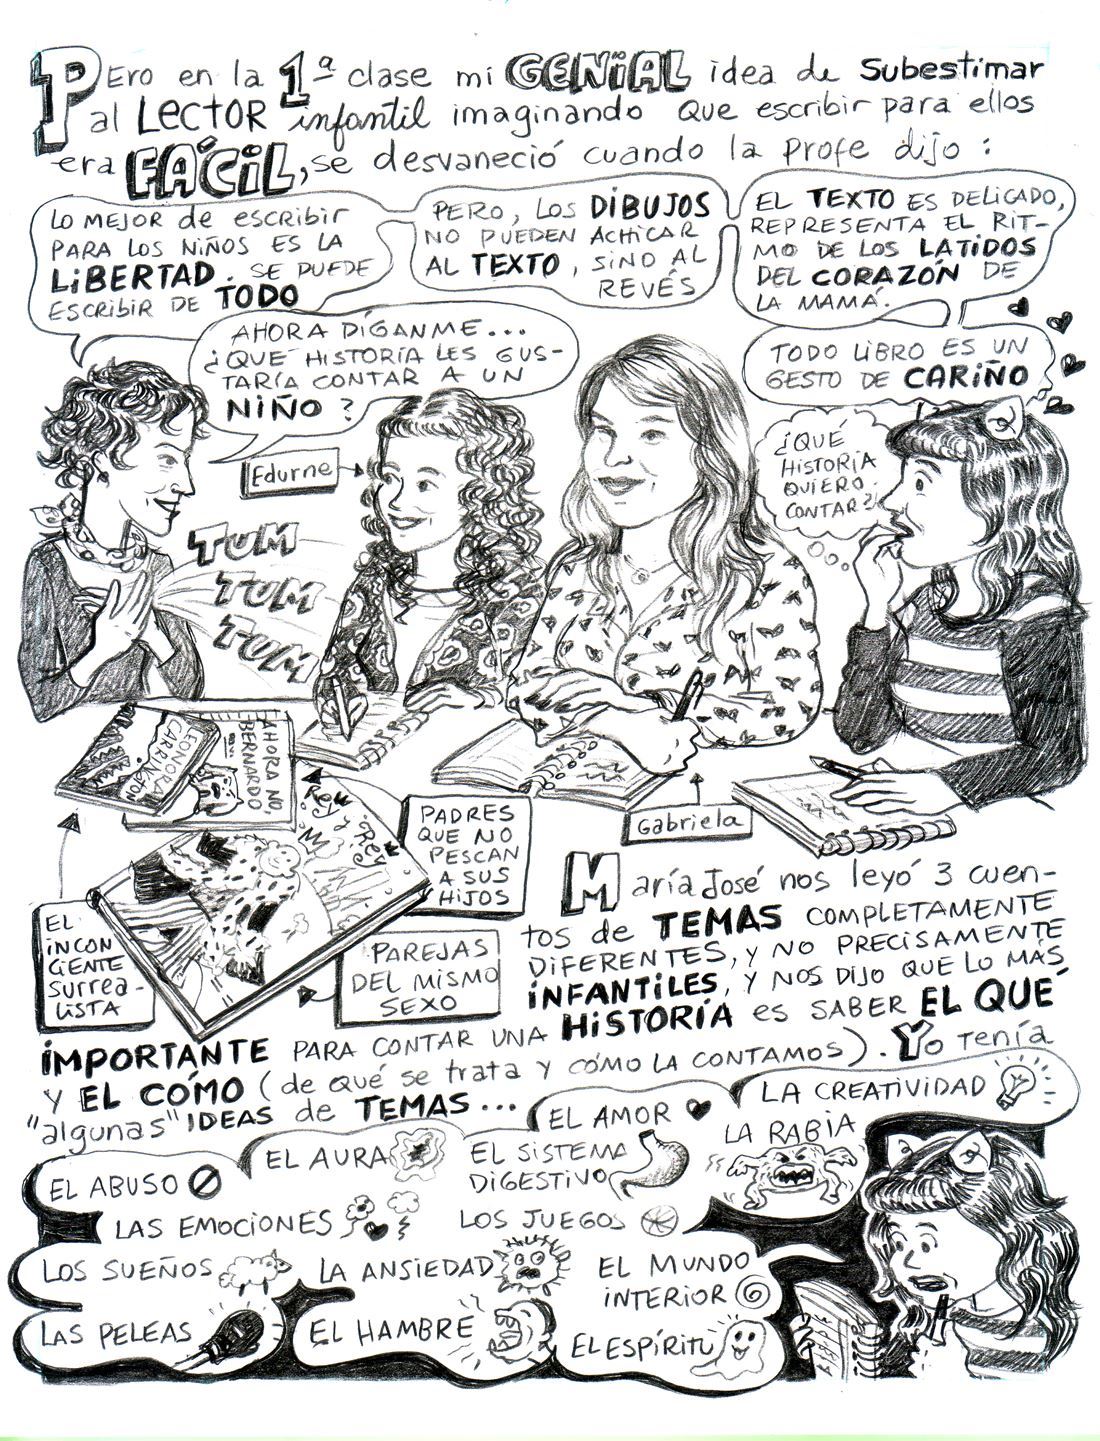 PERO en la 1ª clase mi GENIAL idea de Subestimar
al LECTOR infantil imaginando que escribir para ellos
era FÁCIL, se desvaneció cuando la profe dijo:
LO MEJOR de escribir
PARA LOS NIÑOS ES LA
LIBERTAD. SE PUEDE
ESCRIBIR DE TODO
PERO, LOS DIBUJOS
NO PUEDEN ACHICAR
AL TEXTO, SINO AL
REVÉS
EL TEXTO ES DELICADO,
REPRESENTA EL RIT-
MO DE LOS LATIDOS
DEL CORAZÓN DE
LA MAMÁ.
AHORA DÍGANME...
¿QUÉ HISTORIA LES GUS-
TARÍA CONTAR A UN
NIÑO?
TODO LIBRO ES UN
GESTO DE CARIÑO
¿QUÉ
HISTORIA
QUIERO
CONTAR?!
Edurne
TUM
TUM
TUM
LEONORA
CARRINGTON
AHORA NO,
BERNARDO
Rey y Rey
PADRES
QUE NO
PESCAN
A SUS
HIJOS
Gabriela
EL
INCON
CIENTE
Surrea-
LISTA
PAREJAS
DEL MISMO
SEXO
María José nos leyó 3 cuen-
tos de TEMAS COMPLETAMENTE
DIFERENTES, Y NO PRECISAMENTE
INFANTILES, Y NOS DIJO QUE LO MÁS
IMPORTANTE PARA CONTAR UNA HISTORIA es SABER EL QUÉ
Y EL CÓMO (de qué se trata y CÓMO LA CONTAMOS). Yo Tenía
"algunas" IDEAS de TEMAS...
EL AMOR
LA CREATIVIDAD
EL ABUSO
EL AURA
EL SISTEMA
DIGESTIVO
LA RABIA
LAS EMOCIONES
LOS JUEGOS
LOS SUEÑOS
LA ANSIEDAD
EL MUNDO
INTERIOR
LAS PELEAS
EL HAMBRE
EL ESPÍRITU